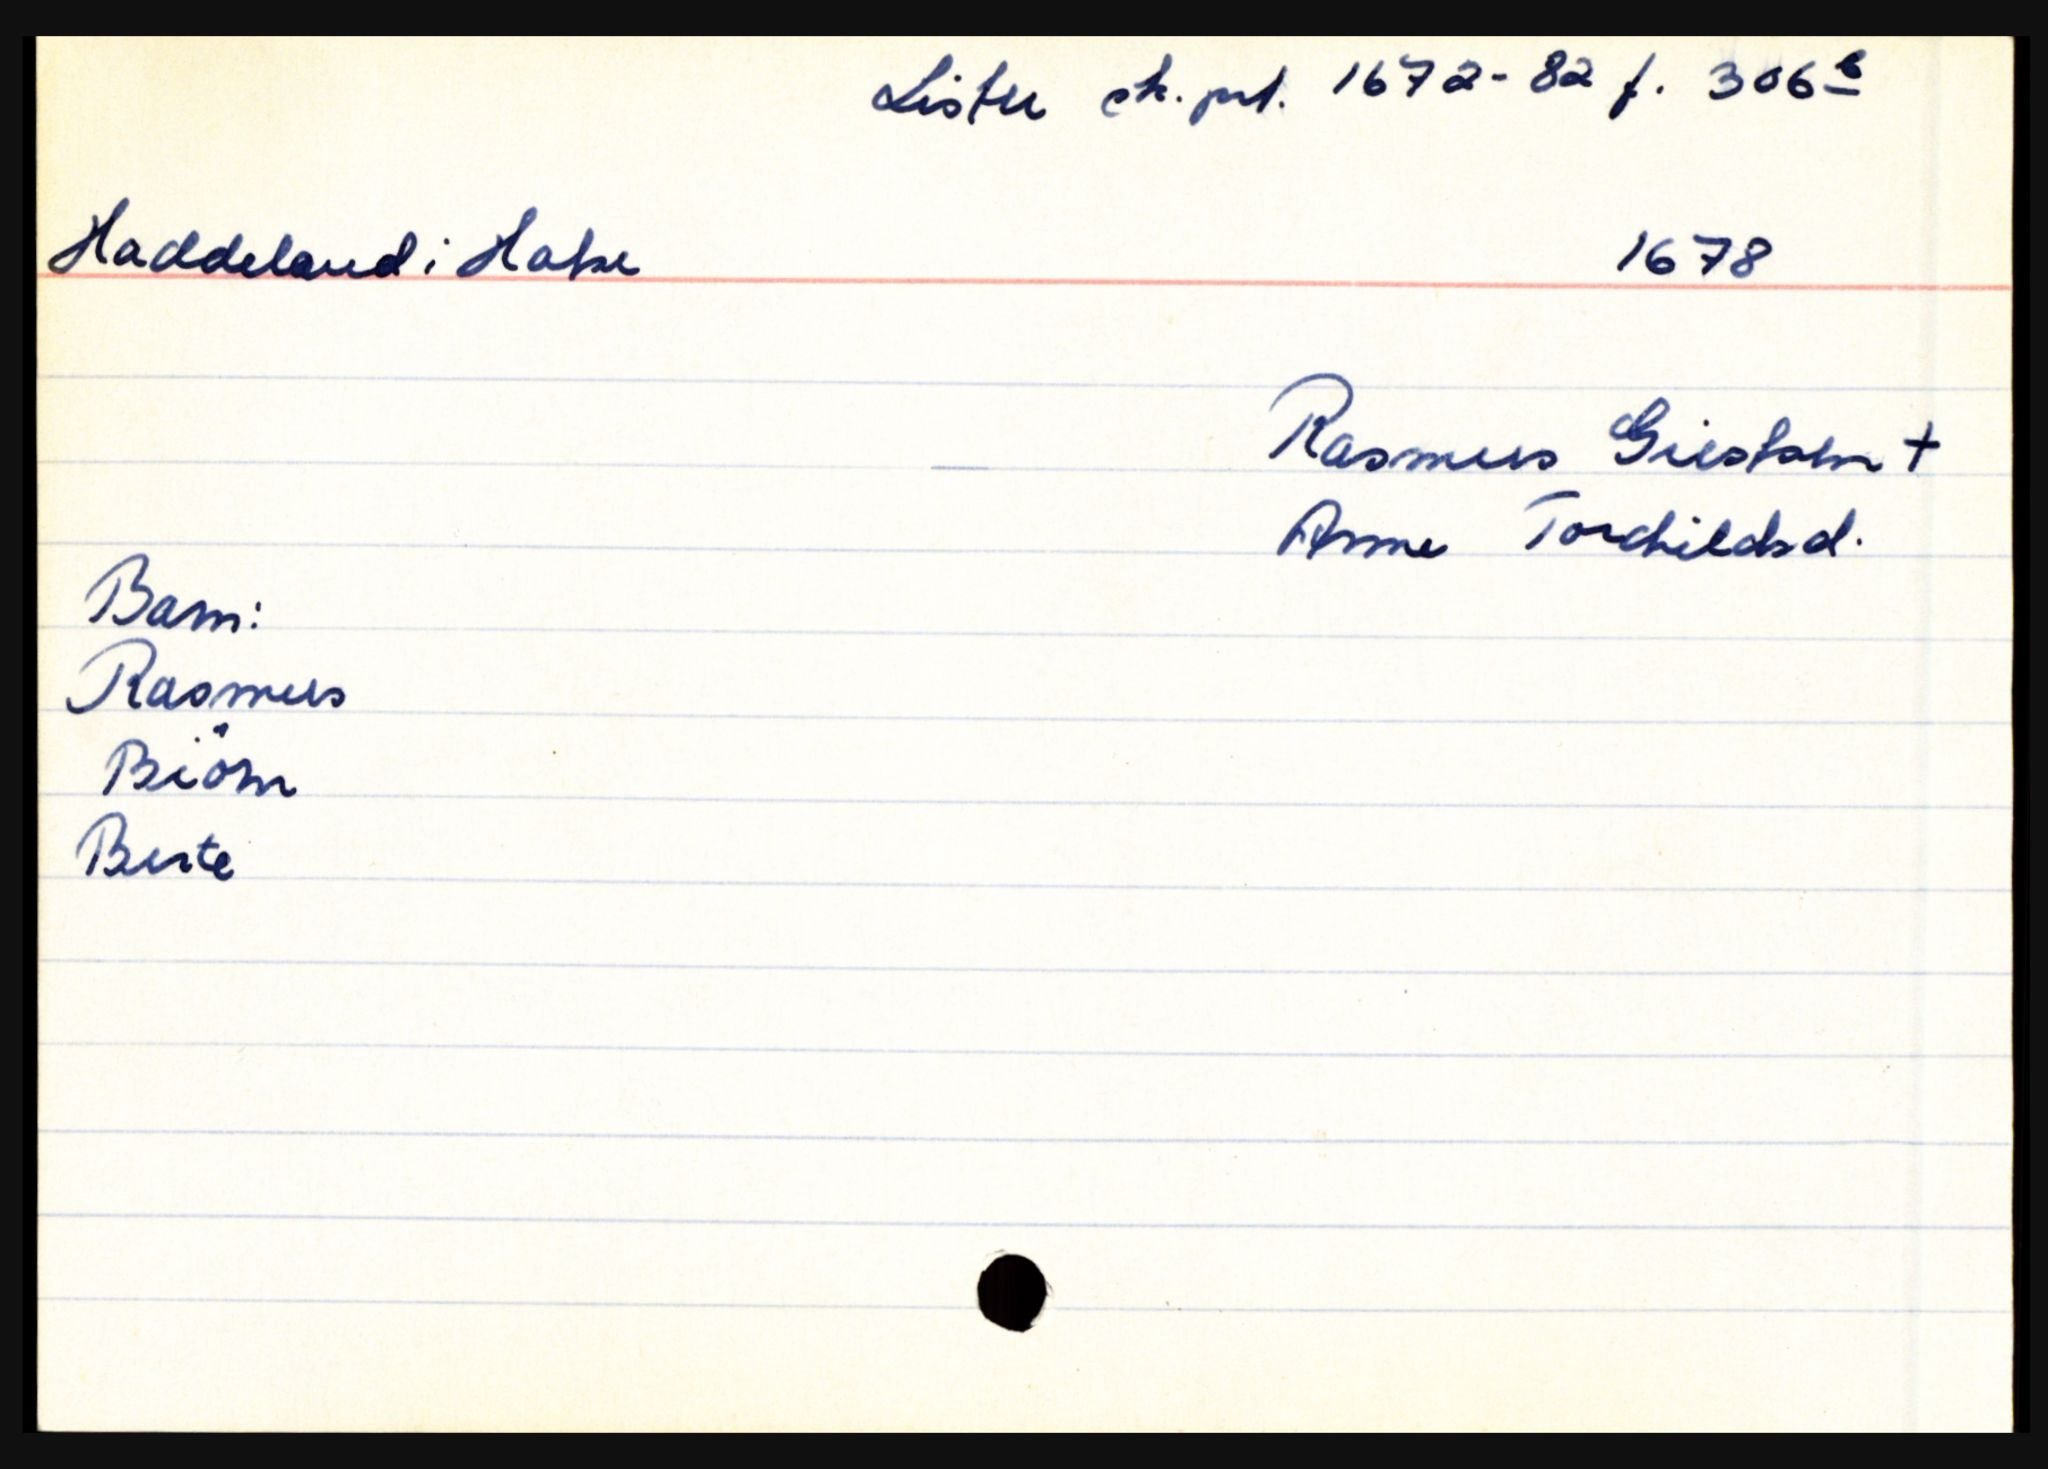 Lister sk. prt. 1672-82 f. 306b
Haddeland i Hakse 1678
Rasmus Giestsen +
Anne Torchildsd.
Barn:
Rasmus
Biörn
Berte